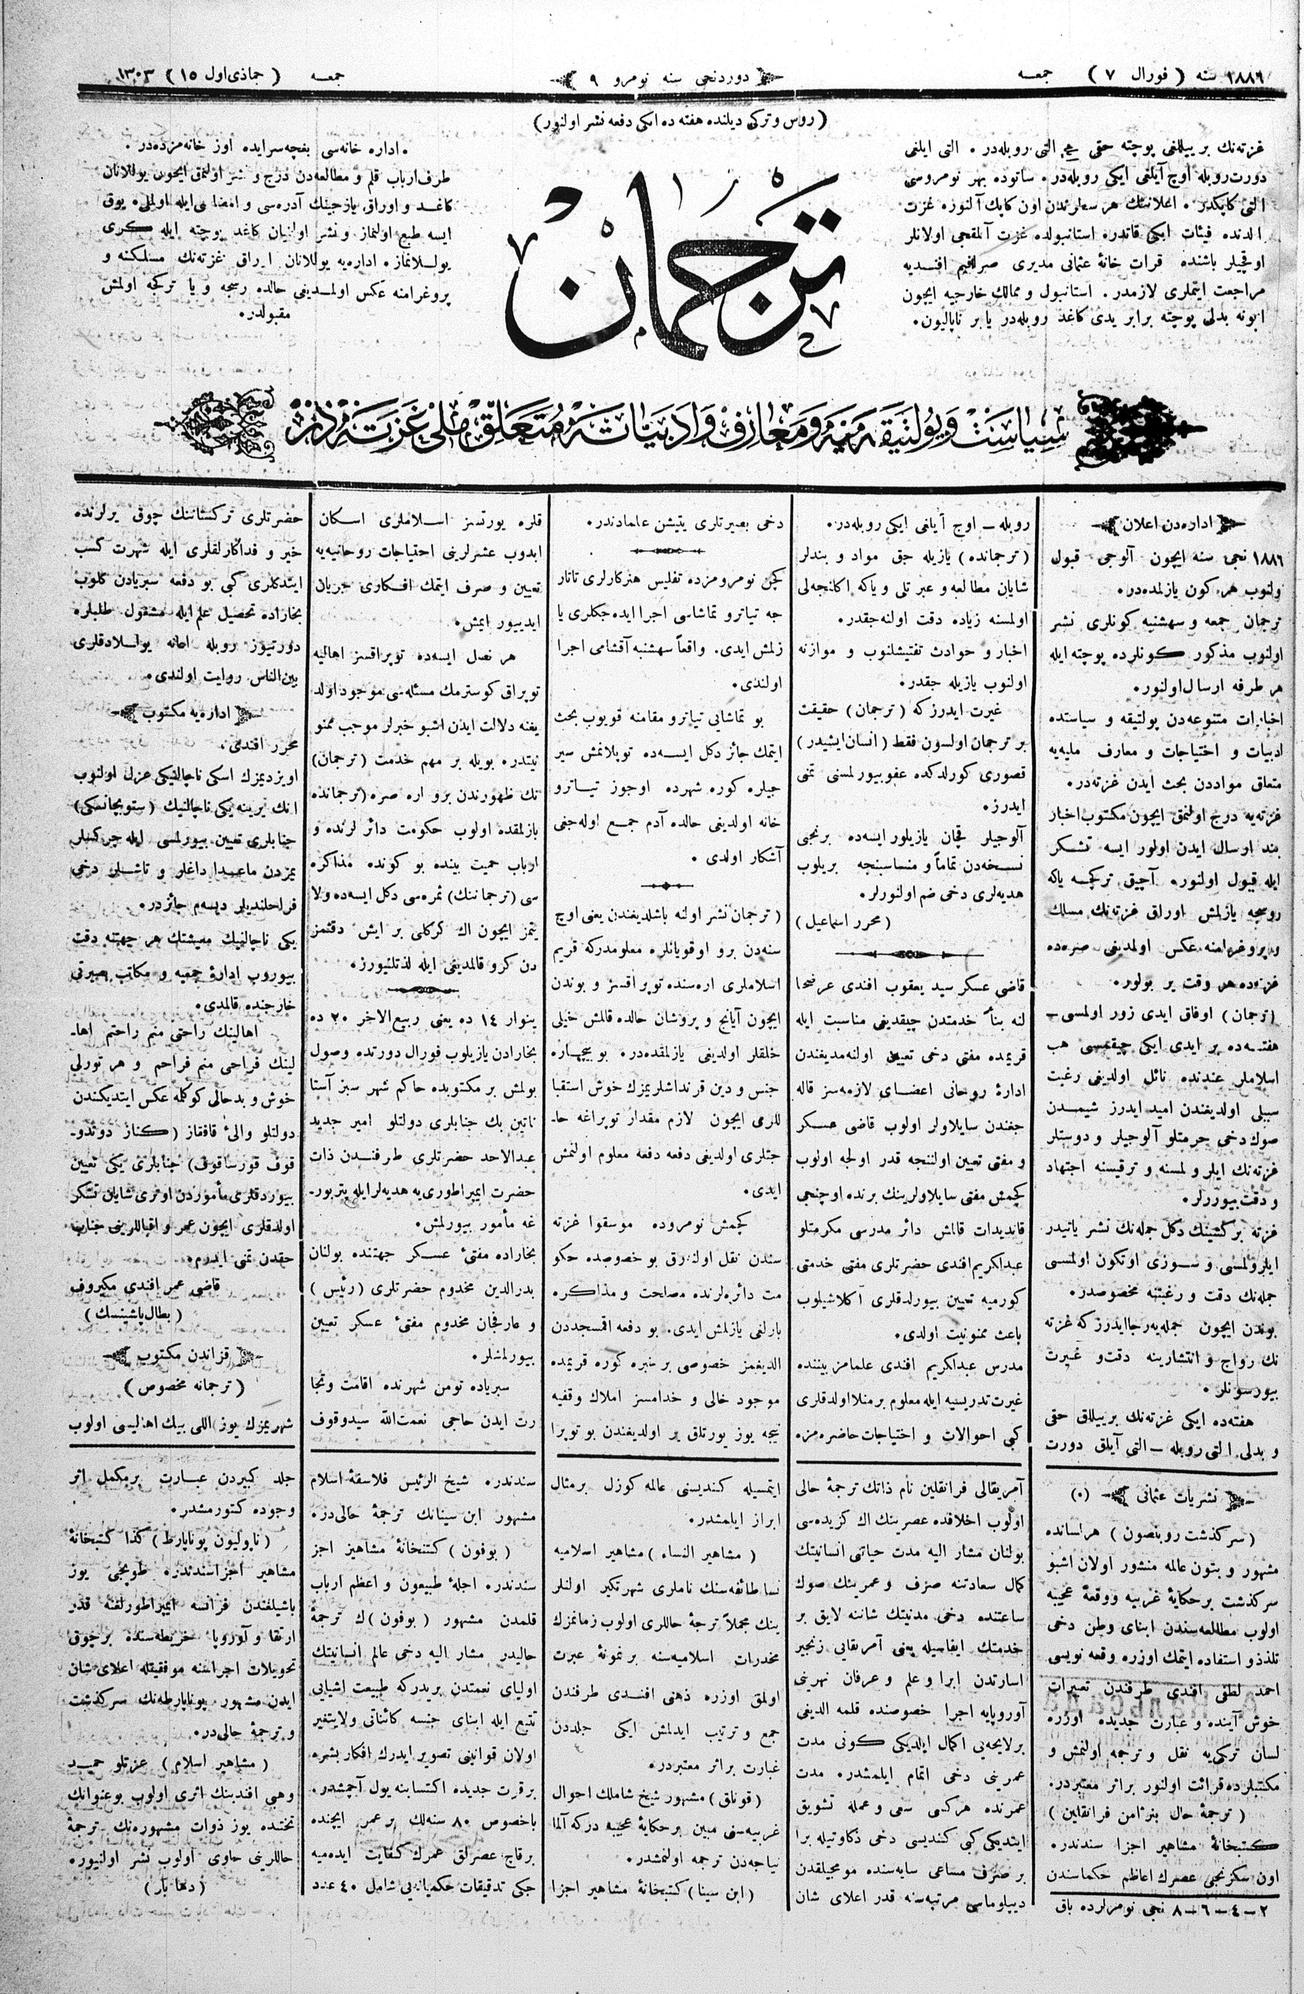 ١٨٨٦ سنه ( فورال ٧ ) جمعه
دوردنجی سنه نومرو ٩
جمعه ( جماذی اول ١٥ ) ١٣٠٣
(روس و ترکی دیلنده هفته ده ایکی دفعه نشر اولنور)
غزته‌نك بر ییللغی پوچته حقی ایله التی روبله‌در . التی ایلغی
دورت روبله اوچ آیلغی ایکی روبله‌در . ساتوده بهر نومروسی
التی کاپکدر . اعلاناتنك هر سطرندن اون کاپك آلنور . غزت
الدنده فیئات ایکی قاتدر . استانبولده غزت آلمقچی اولانلر
اوقچیلر باشنده قرات خانهٔ عثمانی مدیری صرافیم افندیه
مراجعت ایتملری لازمدر . استانبول و ممالك خارجیه ایچون
ابونه بدلی پوچته برابر یدی کاغد روبله‌در یا بر ناپالیون .
ترجمان
. اداره خانه‌سی بغچه‌سرایده اوز خانه‌مزده‌در .
طرف ارباب قلم و مطالعه‌دن درج و نشر اولنمق ایچون یوللانان
کاغد و اوراق یازجینك آدره‌سی و امضاسی ایله اولملی یوق
ایسه طبع اولنماز و نشر اولنیان کاغد پوچته ایله کری
یوللانماز . اداره‌یه یوللانان اوراق غزته‌نك مسلکنه و
پروغرامنه عکس اولمدیغی حالده رسجه و یا ترکجه اولمش
مقبولدر .
سیاست و پولتیقه‌یه و معارف و ادبیاته متعلق ملی غزته‌در
اداره‌دن اعلان
١٨٨٦ نجی سنه ایچون آلوجی قبول
ولنوب هر کون یازلمده‌در .
ترجمان جمعه و سه‌شنبه کونلری نشر
اولنوب مذکور کونلرده پوچته ایله
هر طرفه ارسال اولنور .
اخبارات متنوعه‌دن پولتیقه و سیاستده
ادبیات و احتیاجات و معارف ملیه‌یه
متعلق مواددن بحث ایدن غزته‌در .
غزته‌یه درج اولنمق ایچون مکتوب اخبار
بند ارسال ایدن اولور ایسه تشکر
ایله قبول اولنور . آچیق ترکجه یاکه
روسچه یازلمش اوراق غزته‌نك مسلك
و پروغرامنه عکس اولمدیغی صره‌ده
غزته‌ده هر وقت یر بولور .
(ترجمان) اوفاق ایدی زور اولمسی -
هفته‌ده بر ایدی ایکی چیقمسی هب
اسلاملر عندنده نائل اولدیغی رغبت
سببلی اولدیغندن امید ایدرز شیمدن
صوك دخی حرمتلو آلوجیلر و دوستلر
غزته‌نك ایلرولمسنه و ترقیسنه اجتهاد
و دقت بیوررلر .
غزته بر کشینك دکل جمله‌نك نشر یاتیدر
ایلرولمسی و سوزی اوتکون اولمسی
جمله‌نك دقت و رغبتنه مخصوصدر .
بوندن ایچون جمله‌یه رجا ایدرز که غزته
نك رواج و انتشارینه دقت و غیرت
بیورسونلر .
هفته‌ده ایکی غزته‌نك بر ییللق حقی
و بدلی التی روبله – التی آیلق دورت
روبله – اوچ آیلغی ایکی روبله‌در .
(ترجمانده) یازیله جق مواد و بندلر
شایان مطالعه و عبرتلی و یاکه اکلنجه‌لی
اولمسنه زیاده دقت اولنه‌جقدر .
اخبار و حوادث تفتیشلنوب و موازنه
اولنوب یازیله جقدر .
غیرت ایدرز که (ترجمان) حقیقت
بر ترجمان اولسون فقط (انسان ایشیدر)
قصوری کورلدکده عفو بیورلمسنی تمنی
ایدرز .
آلوجیلر قچان یازیلور ایسه‌ده برنجی
نسخه‌دن تماماً و مناسبنجه بریلوب
هدیه‌لری دخی ضم اولنورلر .
(محرر اسماعیل)
قاضی عسکر سید یعقوب افندی عرضحا
لنه بناً خدمتدن چیقدیغی مناسبت ایله
قریمده مفتی دخی تعیین اولنه‌مدیغندن
ادارهٔ روحانی اعضای لازمه‌سز قاله
جغندن سایلاولر اولوب قاضی عسکر
و مفتی تعیین اولننجه قدر اولجه اولوب
کچمش مفتی سایلاولرینك برنده اوچنجی
قاندیدات قالمش دائر مدرسی مکرمتلو
عبدالکریم افندی حضرتلری مفتی خدمتی
کورمیه تعیین بیورلدقلری آکلاشیلوب
باعث ممنونیت اولدی .
مدرس عبدالکریم افندی علمامز بیننده
غیرت تدریسیه ایله معلوم بر منلا اولدقلری
کبی احوالات و احتیاجات حاضره‌مزه
دخی بصیرتلری یتیشن علمادندر .
کچن نومرومزده تفلیس هنرکارلری تاتار
جه تیاترو تماشاسی اجرا ایده‌جکلری یا
زلمش ایدی . واقعاً سه‌شنبه آقشامی اجرا
اولندی .
بو تماشایی تیاترو مقامنه قویوب بحث
ایتمك جائز دکل ایسه‌ده توپلانمش سیر
جیلره کوره شهرده اوجوز تیاترو
خانه اولدیغی حالده آدم جمع اوله‌جغی
آشکار اولدی .
(ترجمان نشر اولنه باشلدیغندن یعنی اوچ
سنه‌دن برو اوقویانلره معلومدرکه قریم
اسلاملری اره‌سنده توپراقسز و بوندن
ایچون آیانچ و پروشان حالده قالمش خیلی
خلقلر اولدیغی یازلمقده‌در . بو بیچاره
جنس و دین قرنداشلریمزك خوش استقبا
للری ایچون لازم مقدار توپراغه حا-
جتلری اولدیغی دفعه دفعه معلوم اولنمش
ایدی .
کچمش نومروده موسقوا غزته
سندن نقل اولنه‌رق بو خصوصده حکو
مت دائره‌لرنده مصلحت و مذاکره
بارلغی یازلمش ایدی . بو دفعه اقمسجددن
الدیغمز خصوصی بر خبره کوره قریمده
موجود خالی و خدامسز املاك وقفیه
نیجه یوز یورتلق یر اولدیغندن بو توپرا
قلره یورتسز اسلاملری اسکان
ایدوب عشرلرینی احتیاجات روحانیه‌یه
تعیین و صرف ایتمك افکاری جریان
ایدییور ایمش .
هر نصل ایسه‌ده توپراقسز اهالیه
توپراق کوسترمك مسئله‌سی موجود اولد
یغنه دلالت ایدن اشبو خبرلر موجب ممنو
نیتدر . بویله بر مهم خدمت (ترجمان)
نك ظهورندن برو اره صره (ترجمانده
یازلمقده اولوب حکومت دائره‌لرنده و
ارباب حمیت بیننده بو کونده مذاکره
سی (ترجماننك) ثمره‌سی دکل ایسه‌ده ولا
یتمز ایچون اك کرکلی بر ایش دقتمز
دن کرو قالمدیغی ایله لذتلنیورز .
ینوار ١٤ ده یعنی ربیع الاخر ٢٠ ده
بخارادن یازیلوب فورال دورتده وصول
بولمش بر مکتوبده حاکم شهر سبز آستا
ناقین بك جنابلری دولتلو امیر جدید
عبدالاحد حضرتلری طرفندن ذات
حضرت ایمپراطوری‌یه هدیه‌لر ایله پتربور-
غه مأمور بیورلمش .
بخاراده مفتیٔ عسکر جهتنده بولنان
بدرالدین مخدوم حضرتلری (رئیس)
و عارفجان مخدوم مفتیٔ عسکر تعیین
بیورلمشلر .
سبریاده تومن شهرنده اقامت و تجا
رت ایدن حاجی نعمت‌الله سیدوقوف
حضرتلری ترکستاننك چوق یرلرنده
خیر و فداکارلقلری ایله شهرت کسب
ایتدکلری کبی بو دفعه سبریادن کلوب
بخاراده تحصیل علم ایله مشغول طلبلره
دورتیوز روبله اعانه یوللادقلری
بین‌الناس روایت اولندی .
اداره‌یه مکتوب
محرر افندی .
اویزدیمزك اسکی ناچالنیکی عزل اولنوب
انك یرینه یکی ناچالنیك (ستویچانسکی)
جنابلری تعیین بیورلمسی ایله چرکسلر
یمزدن ماعدا داغلر و تاشلر دخی
فراحلندیلر دیسم جائزدر .
یکی ناچالنیك معیشتك هر جهتنه دقت
بیوروب ادارهٔ جمعیه و مکاتب بصیرتی
خارجنده قالمدی .
اهالینك راحتی منم راحتم اها-
لینك فراحی منم فراحم و هر تورلی
خوش و بد حالی کوکلمه عکس ایتدیکندن
دولتلو والئ قافقاز (کناز دوندو-
قوف قورساقوف) جنابلری یکی تعیین
بیوردقلری مأموردن اوتری شایان تشکر
اولدقلری ایچون عمر و اقباللرینی جناب
حقدن تمنی ایدرم .
قاضی عمر افندی مکیروف
(بطال پاشینسك)
قزاندن مکتوب
(ترجمانه مخصوص)
شهریمزك یوز اللی بیك اهالیسی اولوب
نشریات عثمانی (٥)
(سرکذشت روبنصون) هر لسانده
مشهور و بتون عالمه منشور اولان اشبو
سرکذشت بر حکایهٔ غریبه و وقعهٔ عجیبه
اولوب مطالعه‌سندن ابنای وطن دخی
تلذذ و استفاده ایتمك اوزره وقعه نویسی
احمد لطفی افندی طرفندن تعبیرات
خوش آینده و عبارت جدیده اوزره
لسان ترکی‌یه نقل و ترجمه اولنمش و
مکتبلرده قرائت اولنور براثر معتبردر .
(ترجمهٔ حال بنژامن فرانقلین)
کتبخانهٔ مشاهیر اجزا سندندر .
اون سکزنجی عصرك اعاظم حکماسندن
٢–٤–٦–٨ نجی نومرلرده باق
آمریقالی فرانقلین نام ذاتك ترجمهٔ حالی
اولوب اخلاقده عصرینك اك کزیده‌سی
بولنان مشار الیه مدت حیاتی انسانیتك
کمال سعادتنه صرف و عمرینك صوك
ساعتنده دخی مدنیتك شاننه لایق بر
خدمتك ایفاسیله یعنی آمریقایی زنجیر
اسارتدن ابرا و علم و عرفان نهرینی
آوروپایه اجرا خصوصنده قلمه الدیغی
بر لایحه‌یی اکمال ایلدیکی کونی مدت
عمرینی دخی اتمام ایلمشدر . مدت
عمرنده هرکسی سعی و عمله تشویق
ایتدیکی کبی کندیسی دخی ذکاوتیله برا
بر صرف مساعی سایه‌سنده مومجیلقدن
دیپلوماسی مرتبه‌سنه قدر اعلای شان
ایتمسیله کندیسنی عالمه کوزل بر مثال
ابراز ایلمشدر .
(مشاهیر النساء) مشاهیر اسلامیه
نسا طائفه‌سنك ناملری شهرتکیر اولنلر
ینك مجملاً ترجمهٔ حاللری اولوب زمانمزك
مخدرات اسلامیه‌سنه بر نمونهٔ عبرت
اولمق اوزره ذهنی افندی طرفندن
جمع و ترتیب ایدلمش ایکی جلددن
عبارت براثر معتبردر .
(قوناق) مشهور شیخ شاملك احوال
غریبه‌سنی مبین بر حکایهٔ عجیبه درکه آلما
نیاجه‌دن ترجمه اولنمشدر .
(ابن سینا) کتبخانهٔ مشاهیر اجزا
سندندر . شیخ الرئیس فلاسفهٔ اسلام
مشهور ابن سینانك ترجمهٔ حالی‌در .
(بوفون) کتبخانهٔ مشاهیر اجز
سندندر . اجلهٔ طبیعیون و اعظم ارباب
قلمدن مشهور (بوفون)ك ترجمهٔ
حالیدر مشار الیه دخی عالم انسانیتك
اولیای نعمتدن بریدرکه طبیعت اشیایی
تتبع ایله ابنای جنسه کائناتی ولایتغیر
اولان قوانینی تصویر ایدرك افکار بشره
بر قرت جدیده اکتسابنه یول آچمشدر .
باخصوص ٨٠ سنه‌لك بر عمر ایچنده
بر قاچ عصرلق عمرك کفایت ایده‌میه
جکی تدقیقات حکمیانه‌یی شامل ٤٠ عدد
جلد کبیردن عبارت بر مکمل اثر
وجوده کتورمشدر .
(ناپولیون بوناپارط) کذا کتبخانهٔ
مشاهیر اجزاسندندر . طوپجی یوز
باشیلغندن فرانسه ایمپراطورلغنه قدر
ارتقا و آوروپا خریطه‌سنده بر چوق
تحویلات اجراسنه موفقیتله اعلای شان
ایدن مشهور بوناپارطه‌نك سرکذشت
و ترجمهٔ حالی‌در .
(مشاهیر اسلام) عزتلو حمید
وهبی افندینك اثری اولوب بو عنوانك
تحتنده یوز ذوات مشهوره‌نك ترجمهٔ
حاللرینی حاوی اولوب نشر اولنیور .
(دها بار)